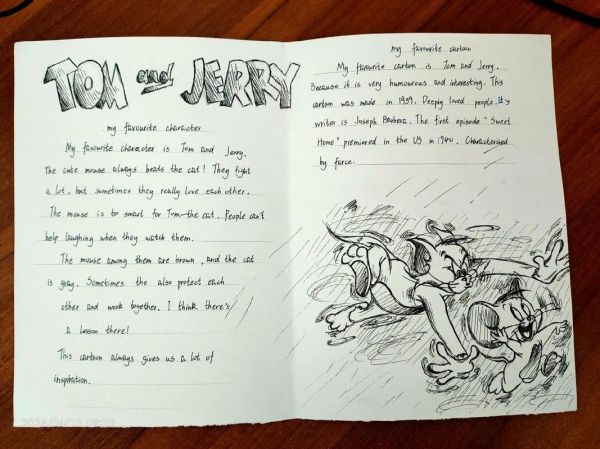 TOM and JERRY
my favourite character
My favourite character is Tom and Jerry.
The cute mouse always beats the cat! They fight
a lot, but sometimes they really love each other.
The mouse is to smart for Tom-the cat. People can't
help laughing when they watch them.
The mouse among them are brown, and the cat
is gray. Sometimes the also protect each
other and work together. I think there's
a lesson there!
This cartoon always gives us a lot of
inspiration.
my favourite cartoon
My favourite cartoon is Tom and Jerry.
Because it is very humourous and interesting. This
cartoon was made in 1939. Deeply loved people. It's
writer is Joseph Barbera. The first episode "Sweet
Home" premiered in the US in 1940. Characterised
by farce.